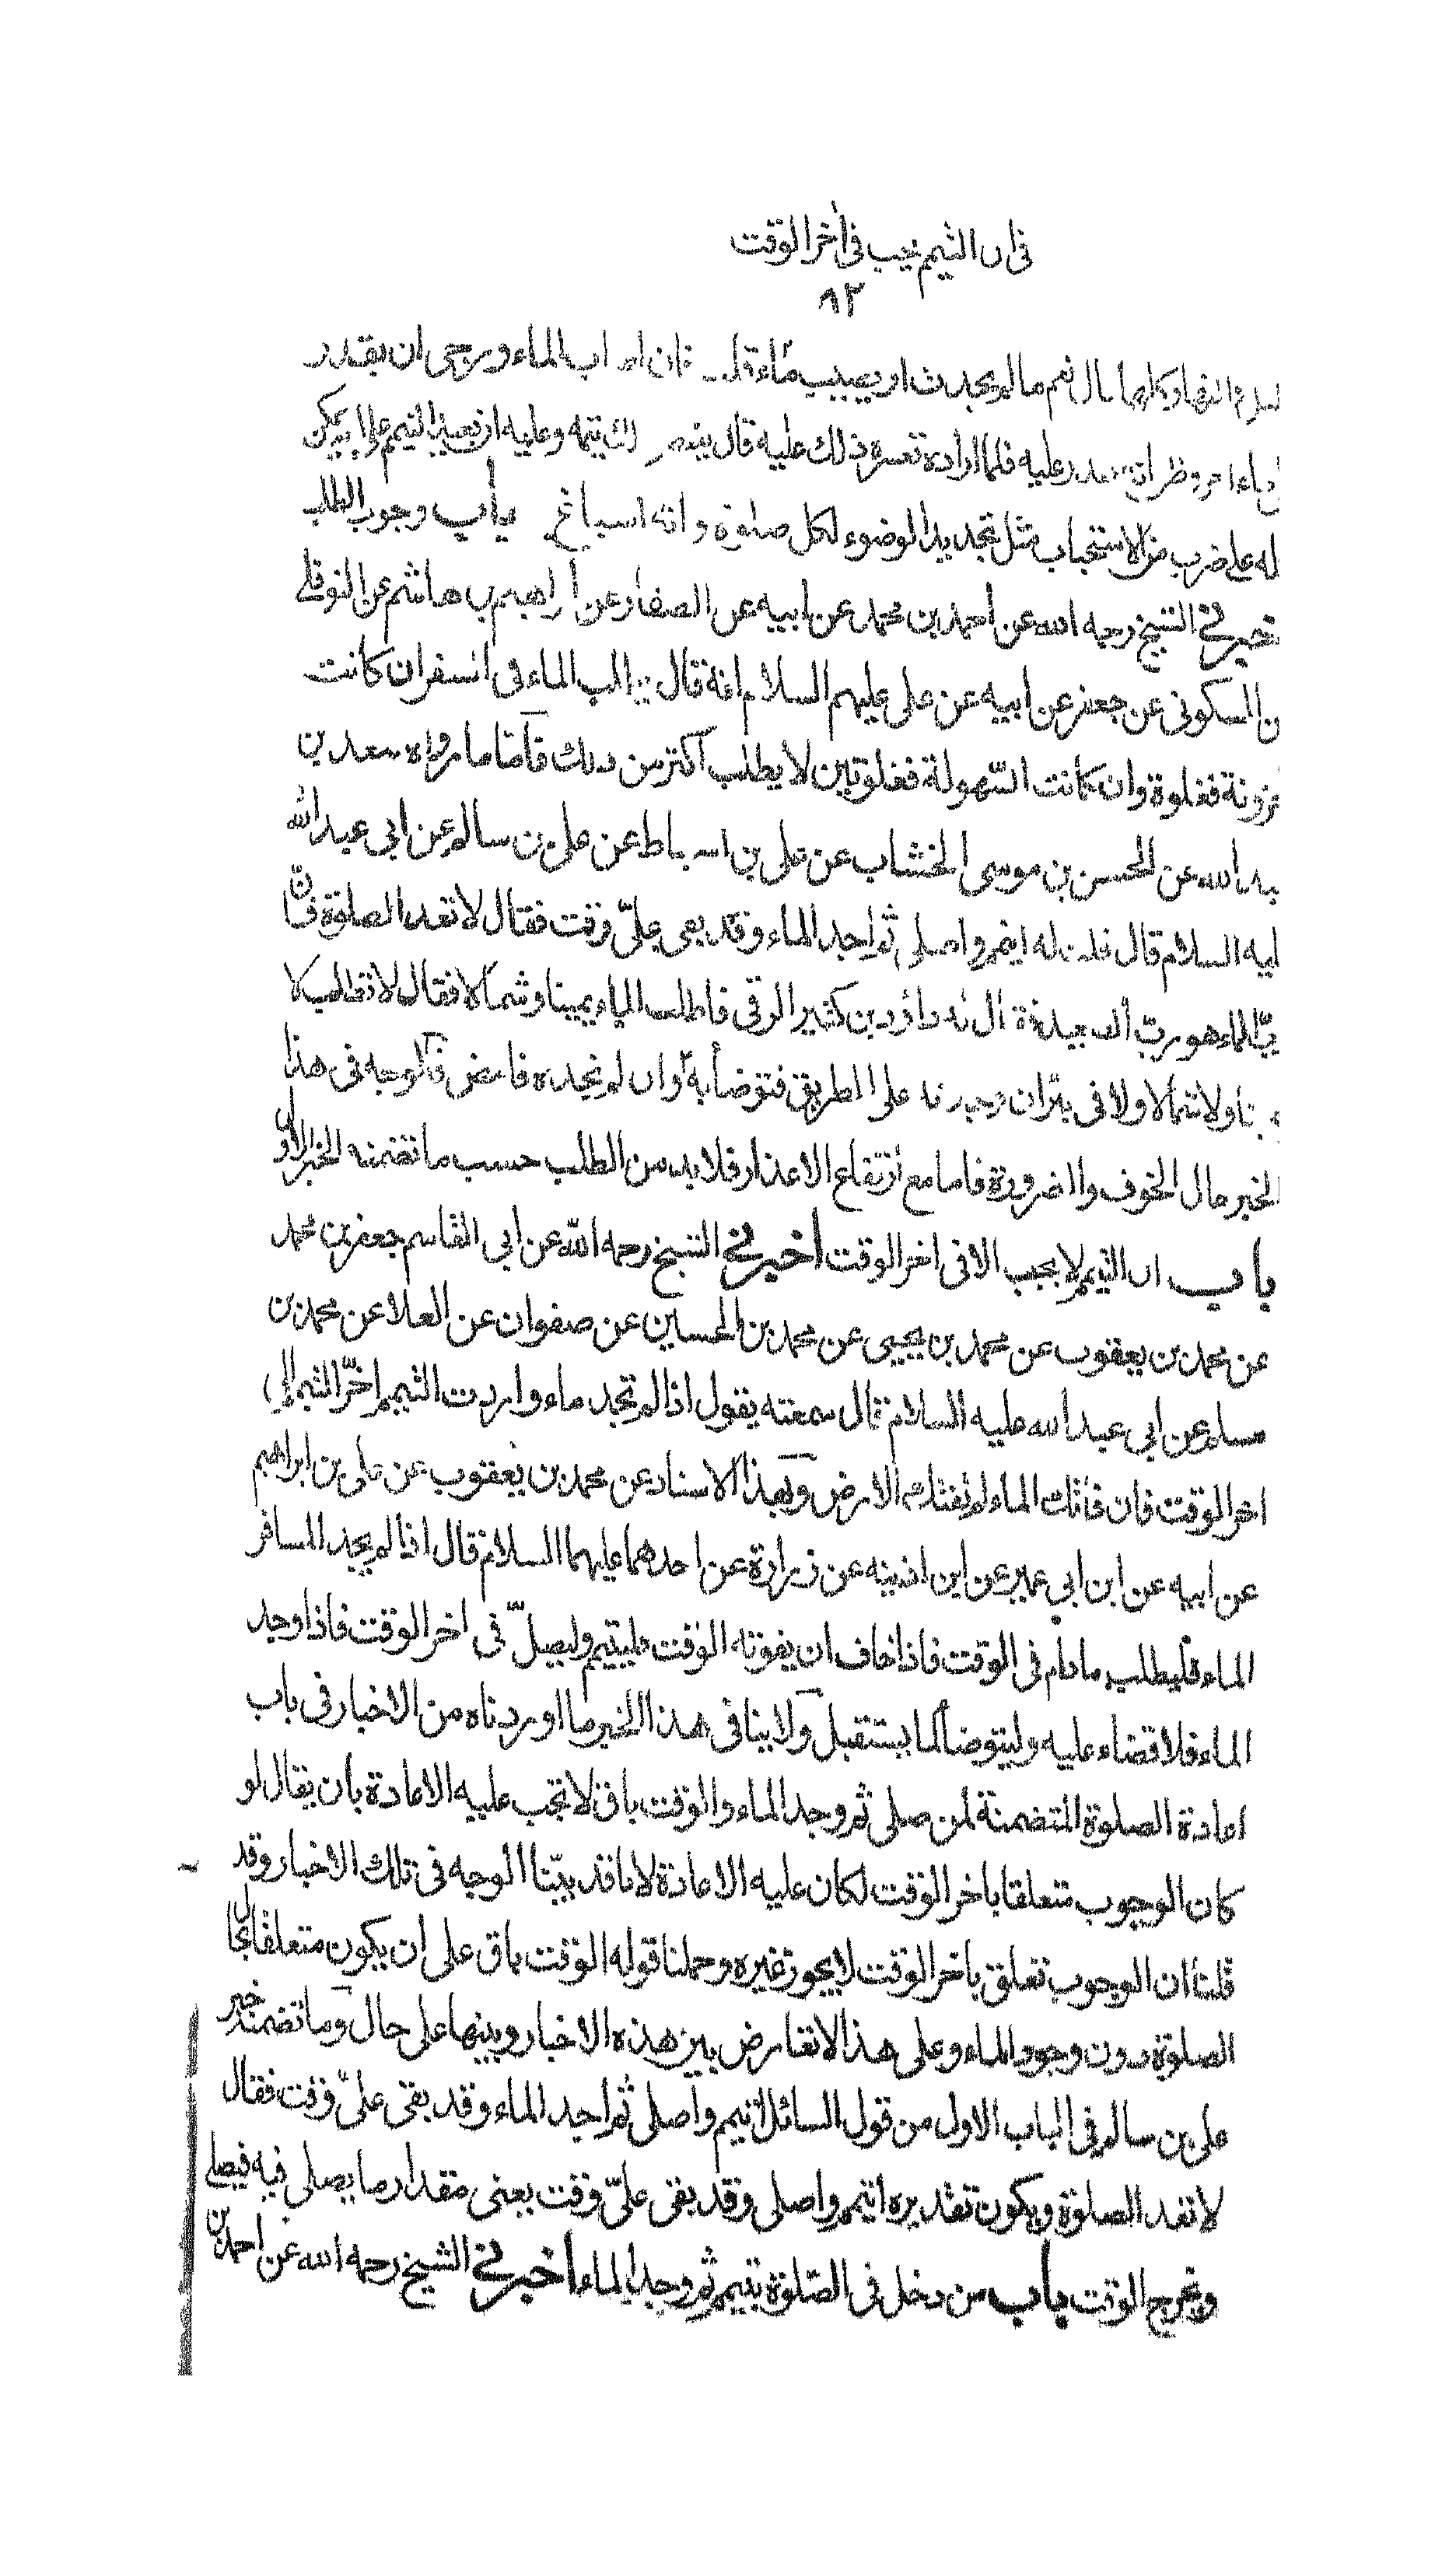 في ان التيمم يجب في اخر الوقت
٨٢
والنهار كلها قال نعم ما لم يحدث او يصيب ماء قلت فان اصاب الماء ورجى ان يقدر
ماء اخر وظن انه يقدر عليه فلما اراده تعسر ذلك عليه قال ينقض ذلك تيمه وعليه ان يعيد التيمم على انه يمكن
له على ضرب من الاستحباب مثل تجديد الوضوء لكل صلوة وانه اسباغ باب وجوب الطلب
خبرني الشيخ رحمه الله عن احمد بن محمد عن ابيه عن الصفار عن ابراهيم بن هاشم عن النوفلي
ن السكوني عن جعفر عن ابيه عن علي عليهم السلام انه قال يطلب الماء في السفر ان كانت
حزونة فغلوة وان كانت السّهولة فغلوتين لا يطلب اكثر من ذلك فأمّا ما رواه سعد بن
بد الله عن الحسن بن موسى الخشاب عن علي بن اسباط عن علي بن سالم عن ابي عبد الله
ليه السلام قال قلت له اتيمم واصلي ثم اجد الماء وقد بقي عليّ وقت فقال لا تعد الصلوة فانّ
ربّ الماء هو ربّ الصعيد قال له داود بن كثير الرقي فاطلب الماء يمينا وشمالا فقال لا تطلب لا
يمينا ولا شمالا ولا في بئر ان وجدته على الطريق فتوضأ به وان لم تجده فامض فالوجه في هذا
الخبر حال الخوف والضرورة فاما مع ارتفاع الاعذار فلا بد من الطلب حسب ما تضمنه الخبر الاول
باب ان التيمم لا يجب الا في اخر الوقت أخبرني الشيخ رحمه الله عن ابي القاسم جعفر بن محمد
عن محمد بن يعقوب عن محمد بن يحيى عن محمد بن الحسين عن صفوان عن العلا عن محمد بن
مسلم عن ابي عبد الله عليه السلام قال سمعته يقول اذا لم تجد ماء واردت التيمم اخّر التيمم الى
اخر الوقت فان فاتك الماء لم تفتك الارض وبهذا الاسناد عن محمد بن يعقوب عن علي بن ابراهيم
عن ابيه عن ابن ابي عمير عن ابن اذينه عن زرارة عن احدهما عليهما السلام قال اذا لم يجد المسافر
الماء فليطلب ما دام في الوقت فاذا خاف ان يفوته الوقت فليتيمم وليصلّ في اخر الوقت فاذا وجد
الماء فلا قضاء عليه وليتوضأ لما يستقبل ولا ينافي هذا الخبر ما اوردناه من الاخبار في باب
اعادة الصلوة المتضمنة لمن صلى ثم وجد الماء والوقت باق لا تجب عليه الاعادة بان يقال لو
كان الوجوب متعلقا باخر الوقت لكان عليه الاعادة لانا قد بيّنا الوجه في تلك الاخبار وقد
قلنا ان الوجوب تعلق باخر الوقت لا يجوز غيره وحملنا قوله الوقت باق على ان يكون متعلقا بحال
الصلوة دون وجود الماء وعلى هذا لا تعارض بين هذه الاخبار وبينها على حال وما تضمنه خبر
علي بن سالم في الباب الاول من قول السائل اتيمم واصلي ثم اجد الماء وقد بقي عليّ وقت فقال
لا تعد الصلوة ويكون تقديره اتيمم واصلي وقد بقى عليّ وقت يعني مقدار ما يصلي فيه فيصلي
ويخرج الوقت باب من دخل في الصّلوة بتيمم ثم وجد الماء أخبرني الشيخ رحمه الله عن احمد بن